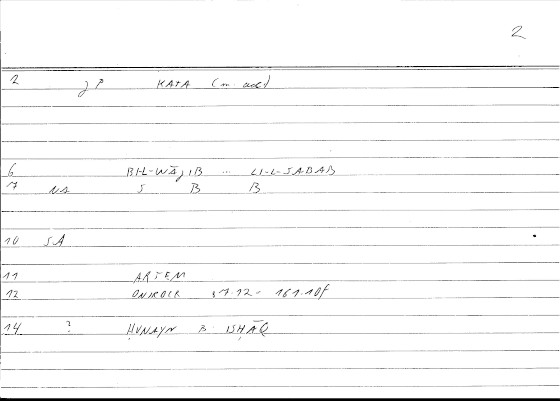 2
2 KATA (m. acc)
6 BI-L-WĀǦIB ... LI-L-SABAB
7 NA S B B
10 SA
11 ARTEM
12 ONIROCR 37.12 - 161.10f
14 ? ḤUNAYN B ISḤĀQ